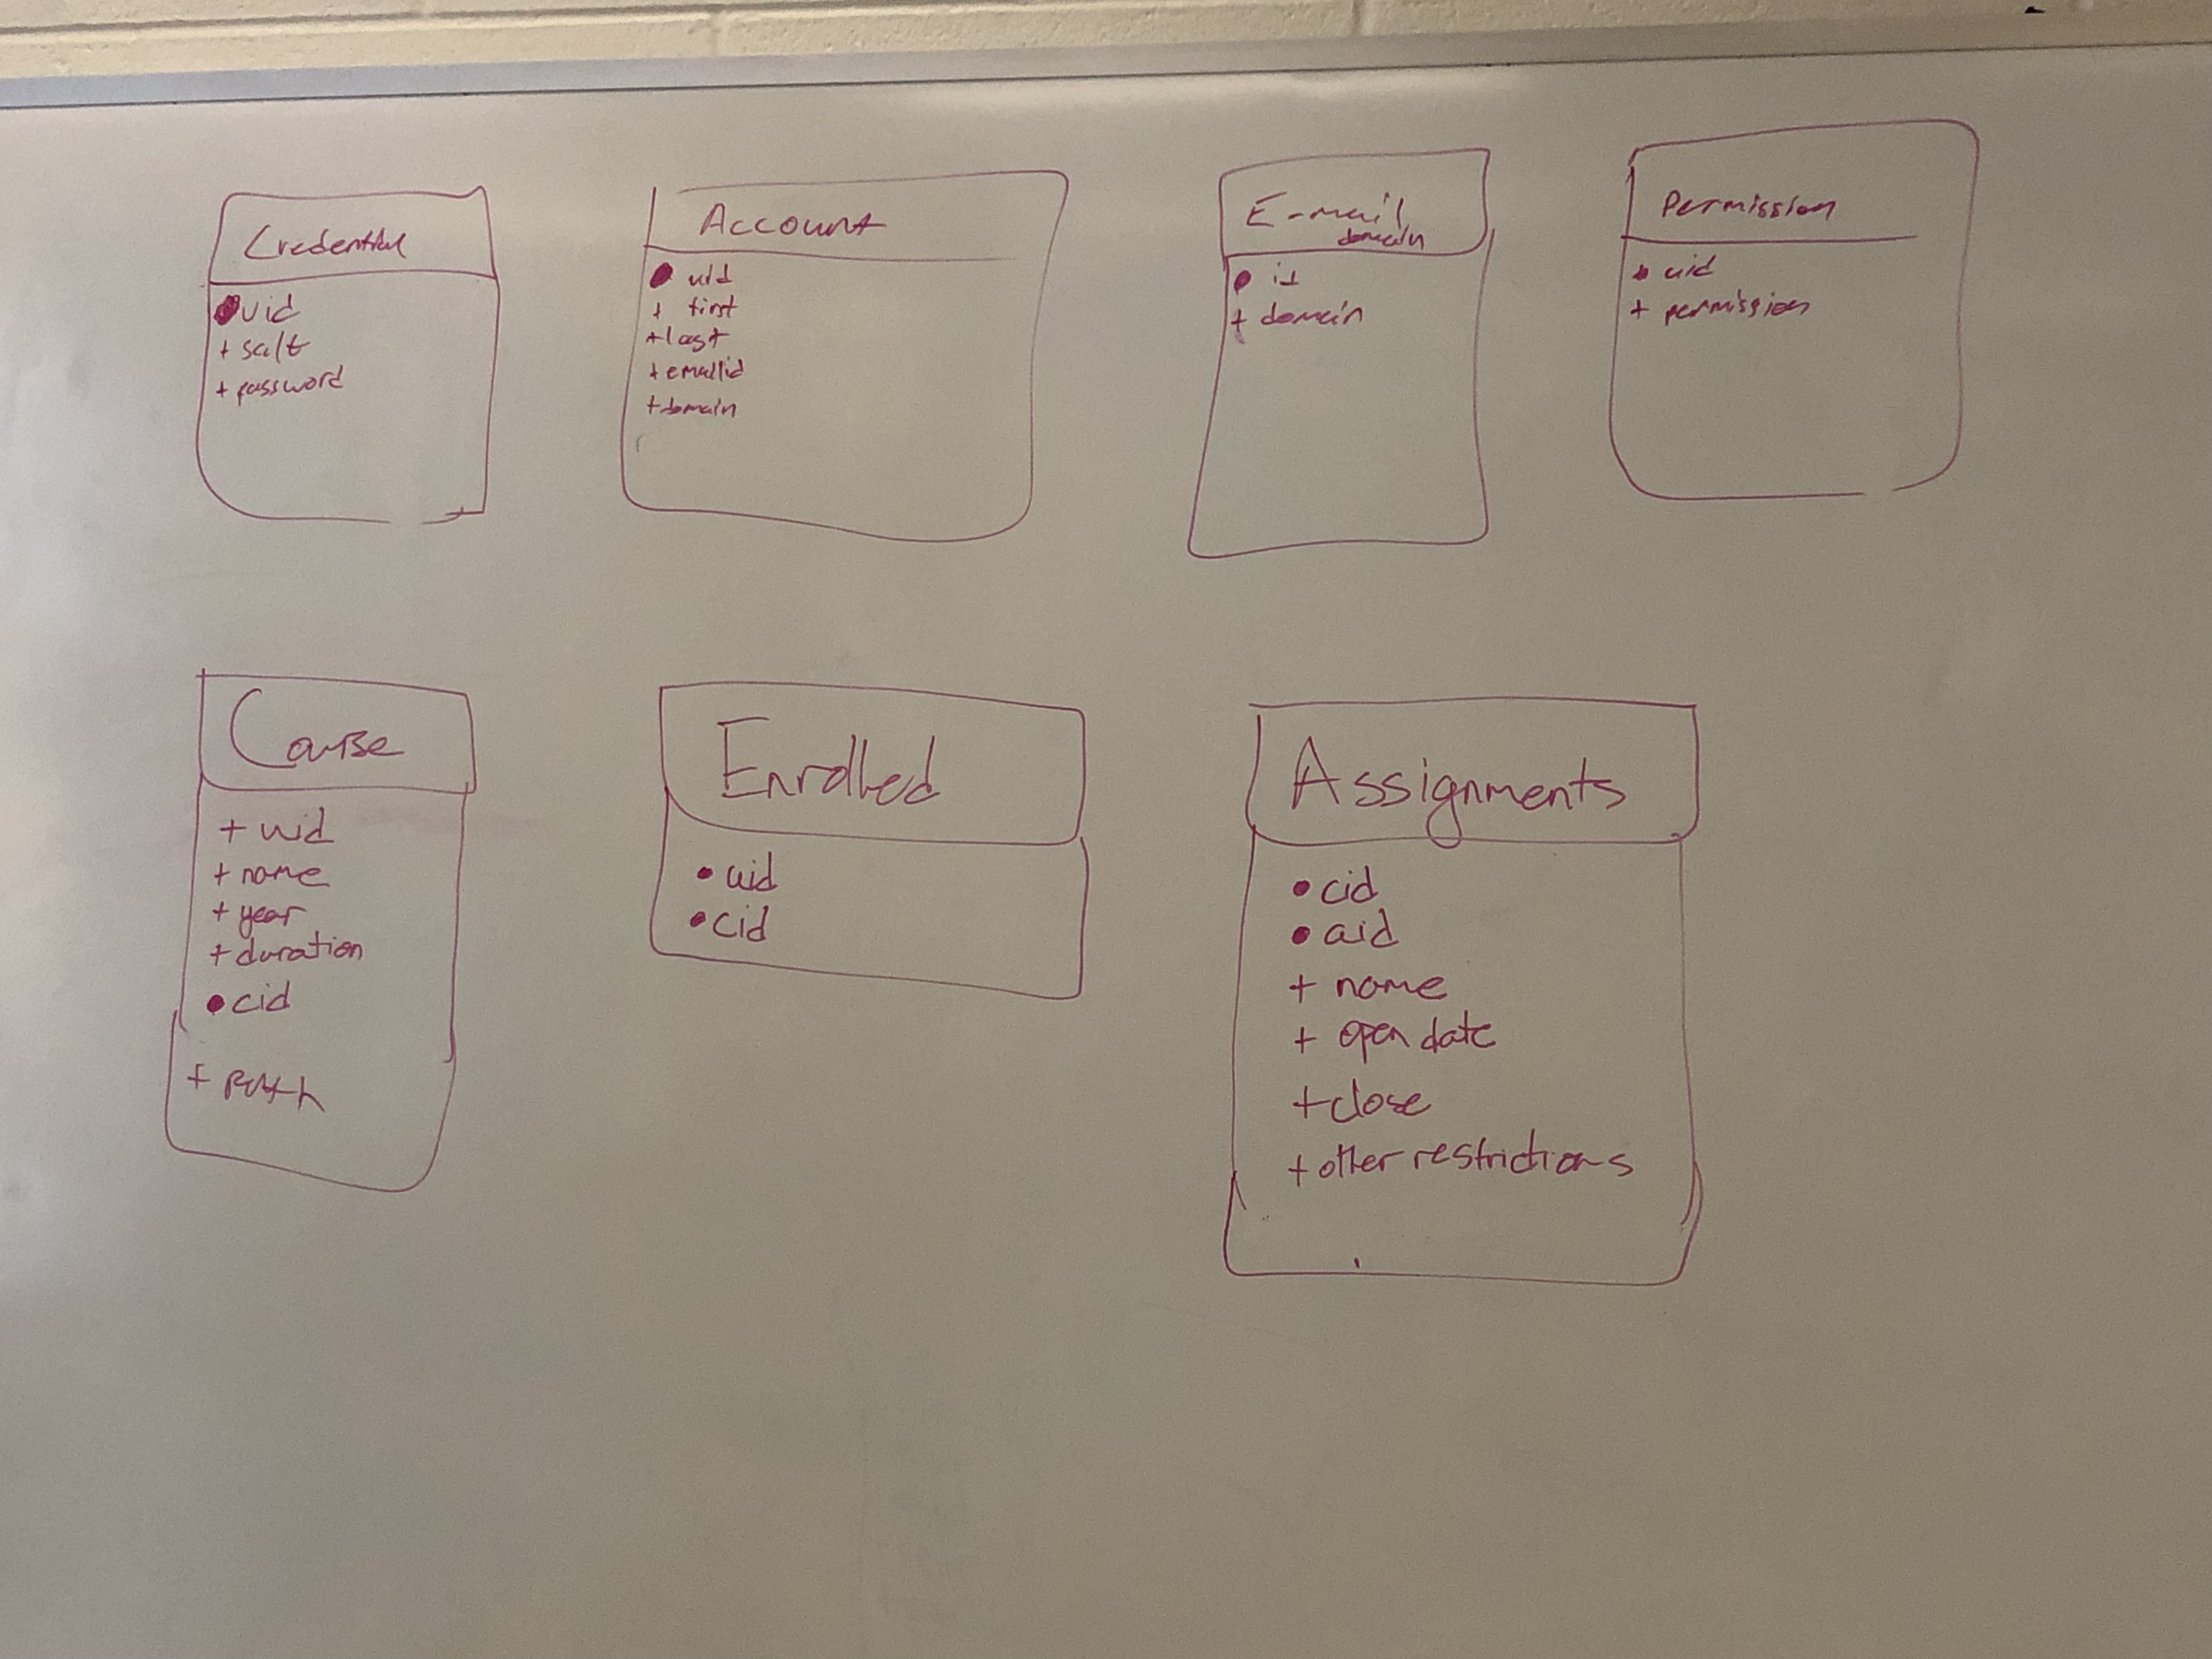 Credential
• uid
+ salt
+ password
Account
• uid
+ first
+ last
+ emailid
+ domain
E-mail
domain
• id
+ domain
Permission
• uid
+ permission
Course
+ uid
+ name
+ year
+ duration
• cid
+ path
Enrolled
• uid
• cid
Assignments
• cid
• aid
+ name
+ open date
+ close
+ other restrictions